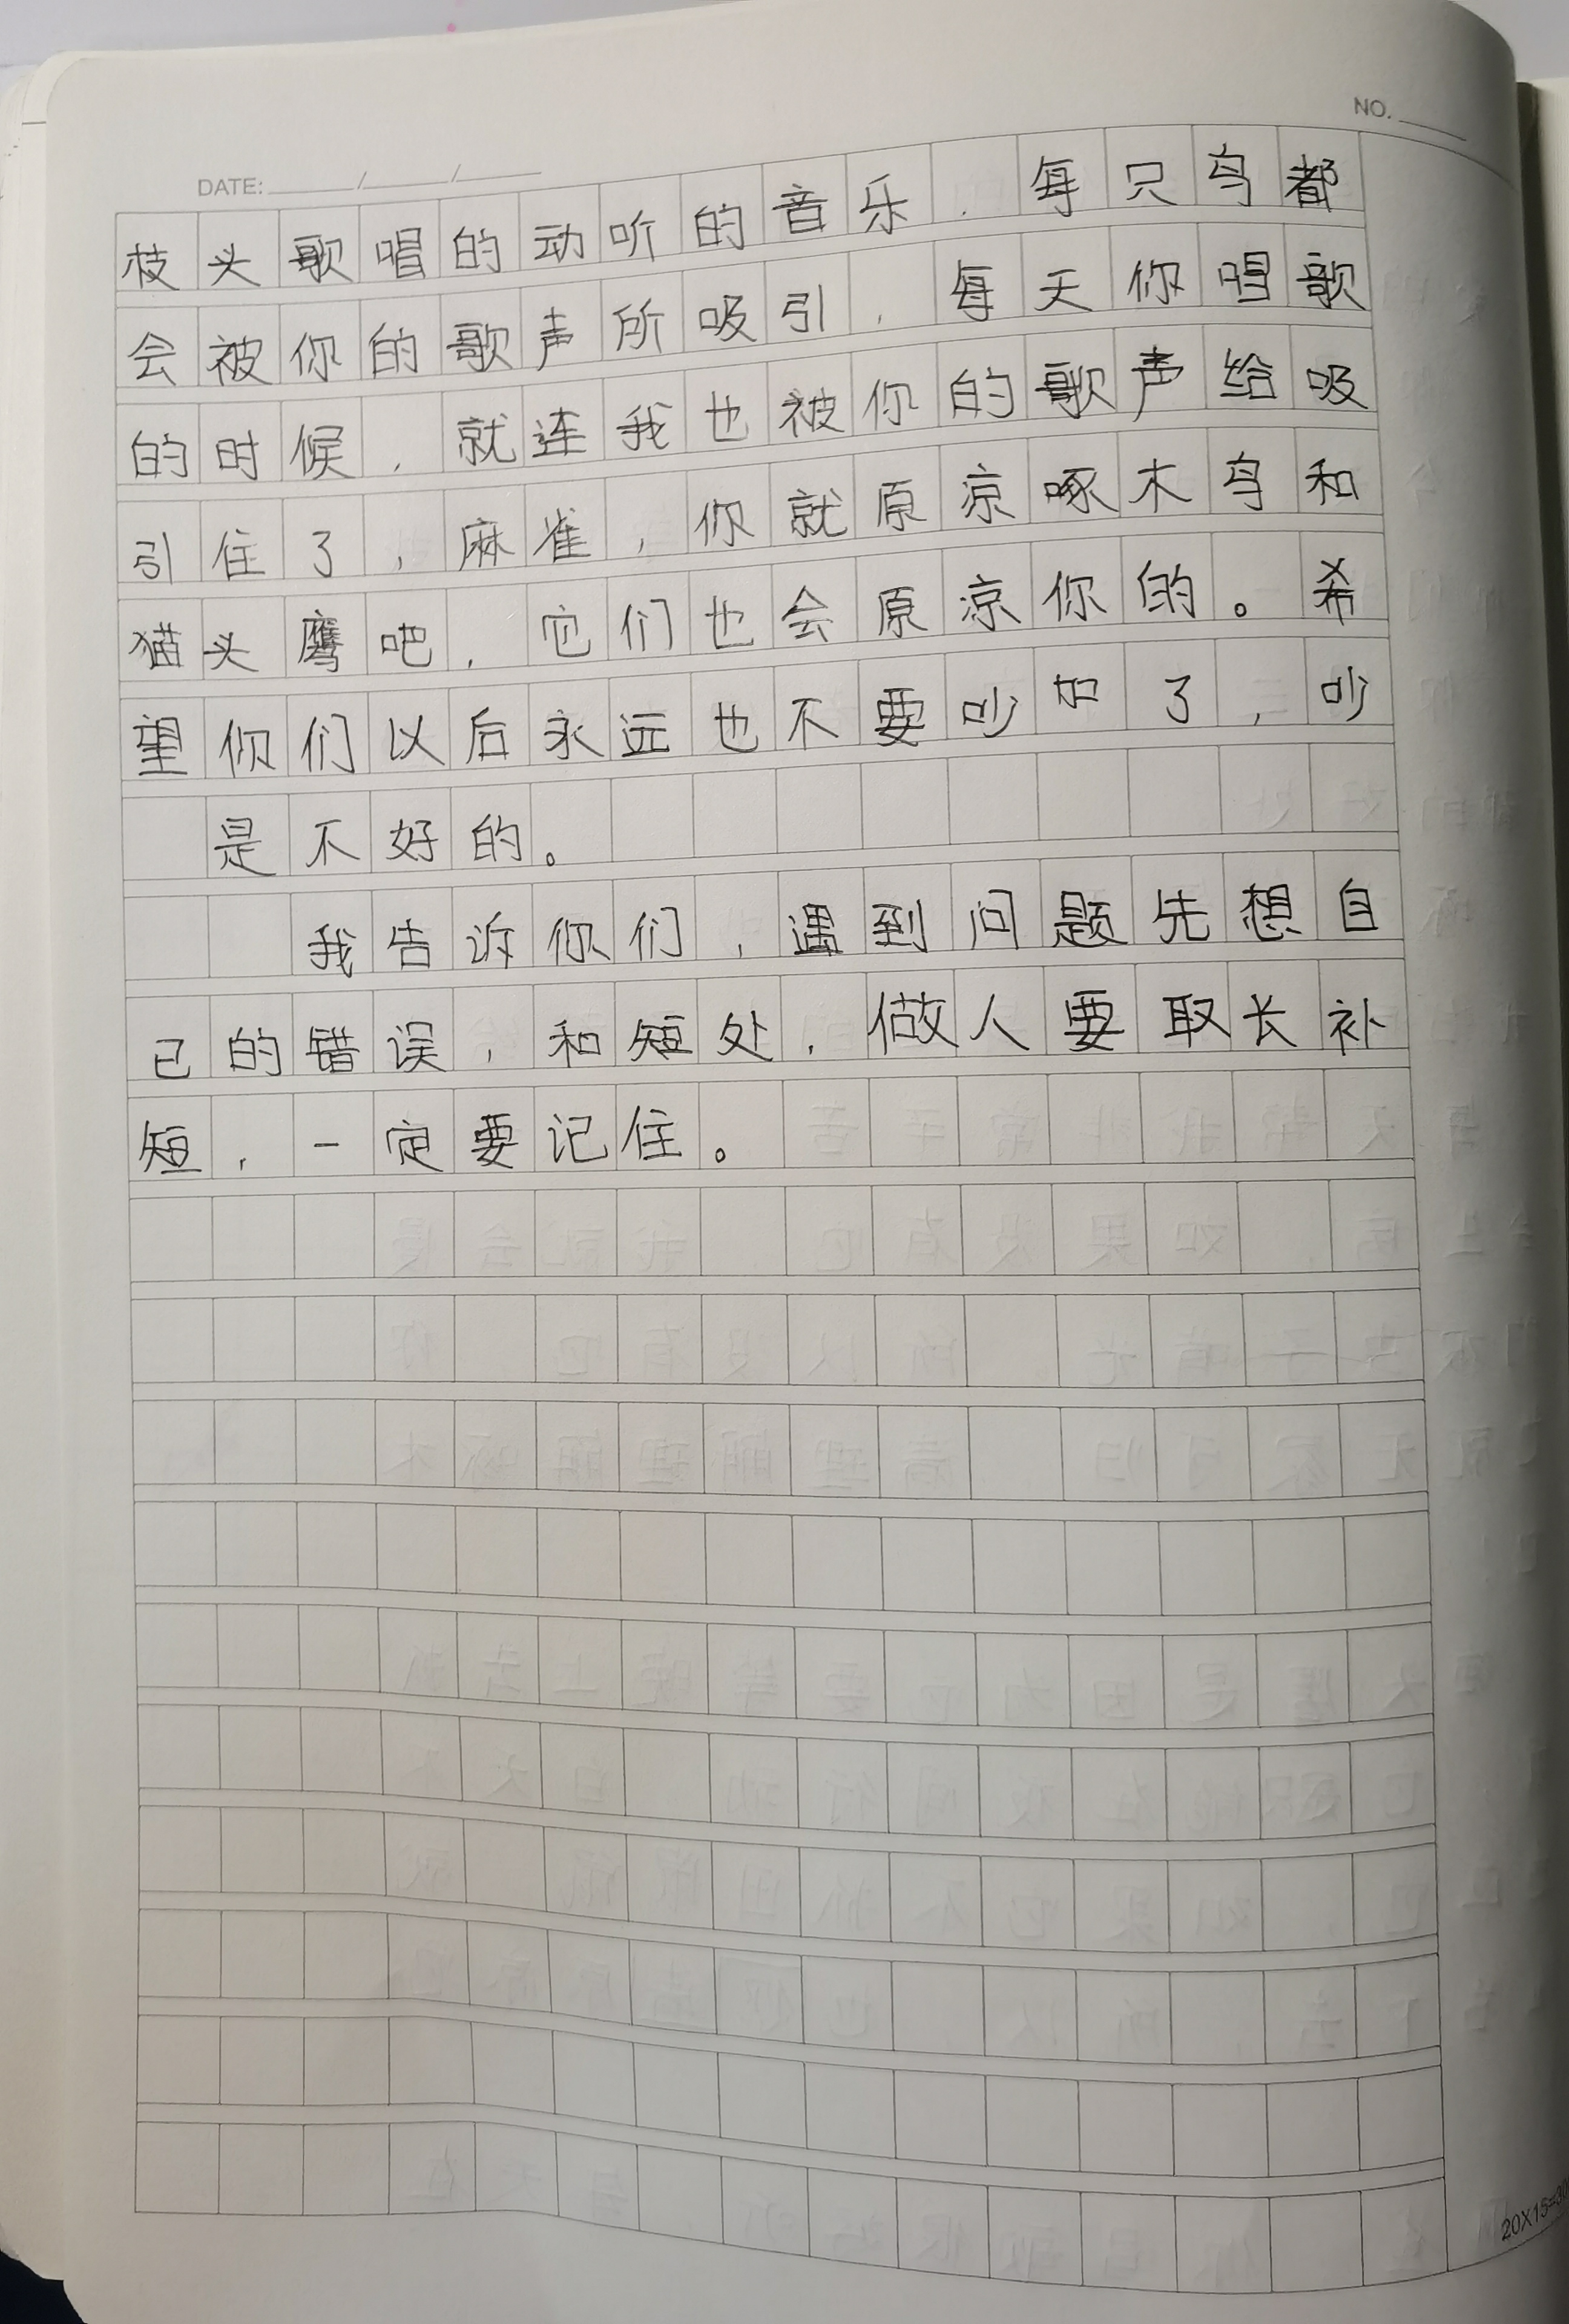 NO.
DATE: / /
枝头歌唱的动听的音乐,每只鸟都
会被你的歌声所吸引,每天你唱歌
的时候,就连我也被你的歌声给吸
引住了,麻雀,你就原凉啄木鸟和
猫头鹰吧,它们也会原凉你的。希
望你们以后永远也不要吵加了,吵
是不好的。
我告诉你们,遇到问题先想自
己的错误,和短处,做人要取长补
短,一定要记住。